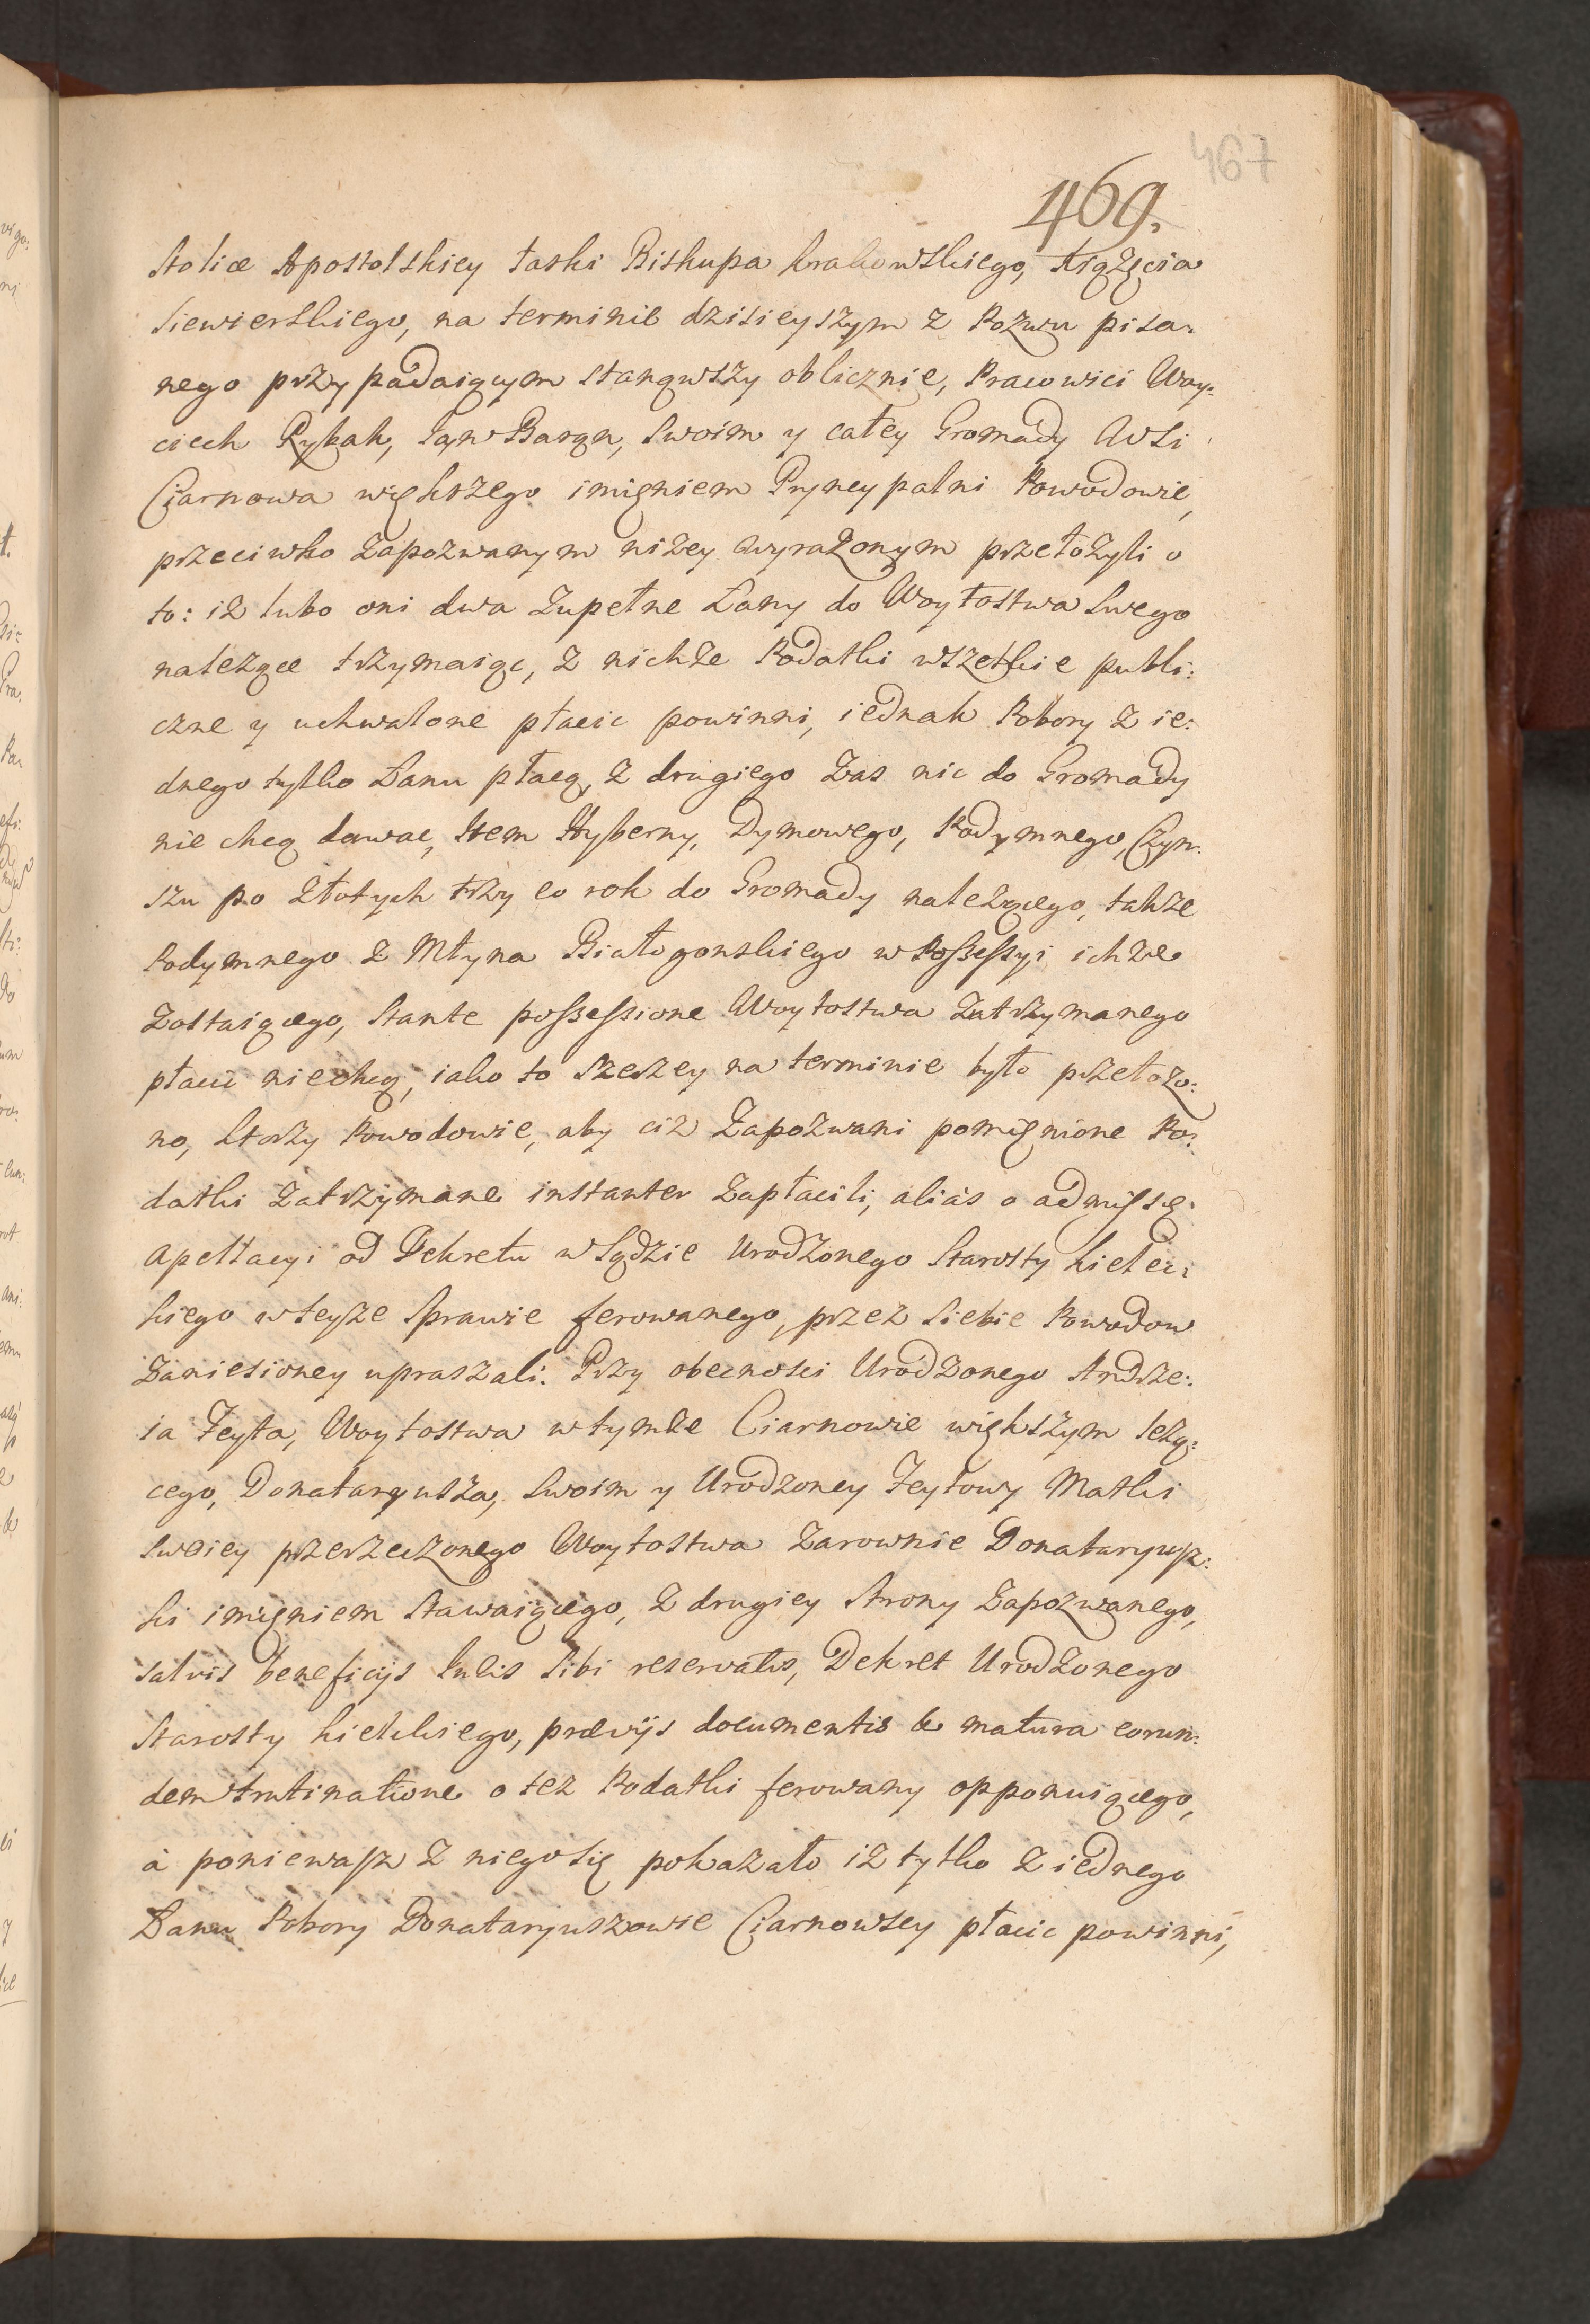 467
469.
Stolicæ Apostolskiey łaski Biskupa Krakowskiego, Xiążęcia
Siewierskiego, na terminie dzisieyszym z Pozwu pisa:
nego przypadaiącym stanąwszy oblicznie, Pracowici Woy:
ciech Rybak, Jan Baran, swoim y całey Gromady Wsi
Ciarnowa większego imięniem Pryncypalni Powodowie,
przeciwko Zapozwanym niżey wyrażonym przełożyli o
to: iż lubo oni dwa zupełne Łany do Woytostwa swego
należące trzymaiąc, z nichże Podatki wszelkie publi:
czne y uchwalone płacic powinni, iednak Pobory z ie:
dnego tylko Łanu płacą, z drugiego zas nic do Gromady
nie chcą dawac, Item Hyberny, Dymowego, Podymnego, Czyn:
szu po złotych trzy co rok do Gromady należącego, także
Podymnego z Młyna Białogonskiego w Possessyi ichże
zostaiącego, stante possessione Woytostwa zatrzymanego
płacic niechcą, iako to szerzey na terminie było przełożo:
no, którzy Powodowie, aby ciż Zapozwani pomięnione Po:
datki zatrzymane instanter zapłacili, aliàs o admissę
apellacyi od Dekretu w Sądzie Urodzonego Starosty Kielec:
kiego w teyże sprawie ferowanego, przez siebie Powodow
zaniesioney upraszali. Przy obecności Urodzonego Andrze:
ia Feyta, Woytostwa w tymże Ciarnowie większym leżą:
cego, Donataryusza, swoim y Urodzoney Feytowy Matki
swoiey przerzeczonego Woytostwa zarownie Donataryusz:
ki imięniem stawaiącego, z drugiey strony Zapozwanego,
salvis beneficijs Iuris sibi reservatis, Dekret Urodzonego
Starosty Kieleckiego, prævijs documentis & matura eorun:
dem trutinatione o też Podatki ferowany opponuiącego,
à poniewasz z niego się pokazało iż tylko z iednego
Łanu Pobory Donataryuszowie Ciarnowscy płacic powinni,